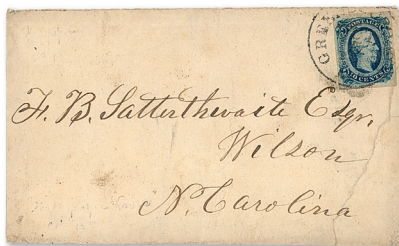 GREE
TEN CENTS
F. B. Satterthwaite Esqr.
Wilson
N. Carolina